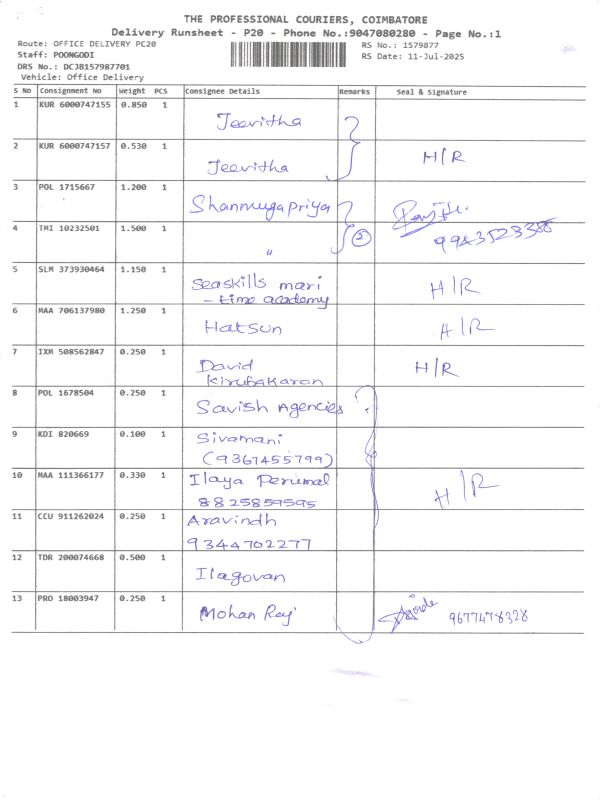 THE PROFESSIONAL COURIERS, COIMBATORE
Delivery Runsheet - P20 - Phone No.:9047080280 - Page No.:1
Route: OFFICE DELIVERY PC20
Staff: POONGODI
DRS No.: DCJB157987701
Vehicle: Office Delivery
RS No.: 1579877
RS Date: 11-Jul-2025
S No Consignment No Weight PCS Consignee Details Remarks Seal & Signature
1 KUR 6000747155 0.850 1 Jeevitha
2 KUR 6000747157 0.530 1 Jeevitha H/R
3 POL 1715667 1.200 1 Shanmuga priya
4 TMI 10232501 1.500 1 " 2
5 SLM 373930464 1.150 1 Seaskills mari
- time academy H/R
6 MAA 706137980 1.250 1 Hatsun H/R
7 IXM 508562847 0.250 1 David
Kirubakaran H/R
8 POL 1678504 0.250 1 Savish Agencies
9 KDI 820669 0.100 1 Sivamani
(9367455799)
10 MAA 111366177 0.330 1 Ilaya Perumal
8825859595 H/R
11 CCU 911262024 0.250 1 Aravindh
9344702277
12 TDR 200074668 0.500 1 Ilagovan
13 PRO 18003947 0.250 1 Mohan Raj 9677478328